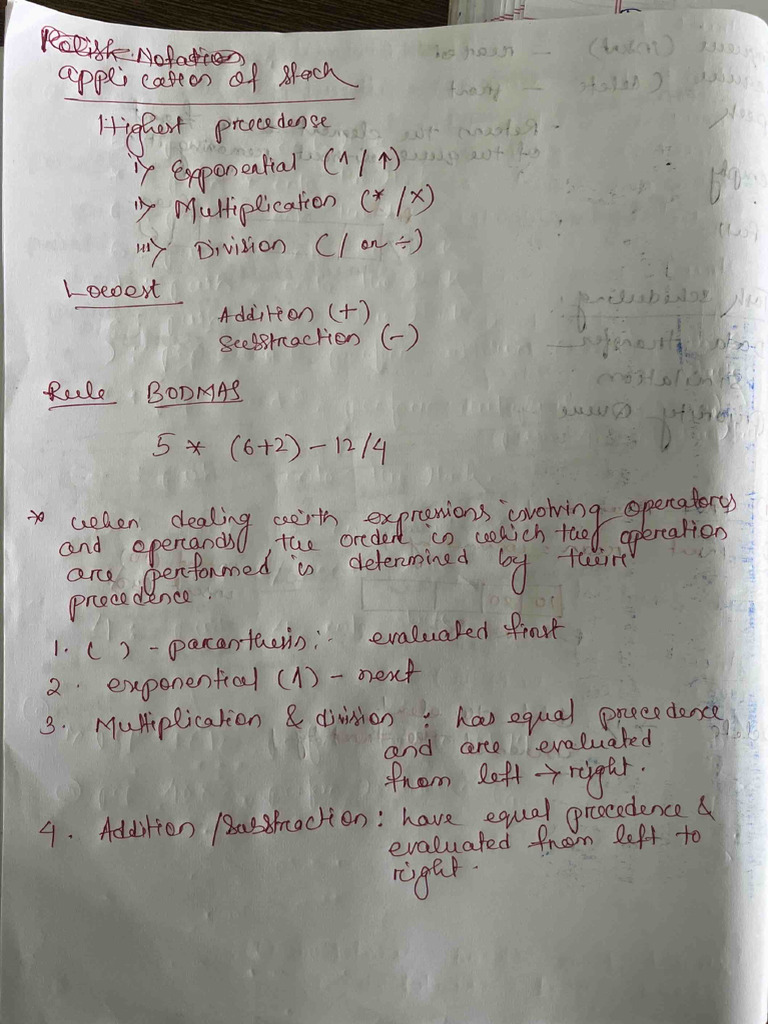 Polish Notation
application of stack
Highest precedence
i) Exponential (^/↑)
ii) Multiplication (*/×)
iii) Division (/ or ÷)
Lowest
Addition (+)
Substraction (-)
Rule BODMAS
5 * (6+2) - 12/4
* when dealing with expressions involving operators
and operands, the order in which the operation
are performed is determined by their
precedence.
1. ( ) - paranthesis :- evaluated first
2. exponential (^) - next
3. Multiplication & division : has equal precedence
and are evaluated
from left → right.
4. Addition /Substraction : have equal precedence &
evaluated from left to
right.